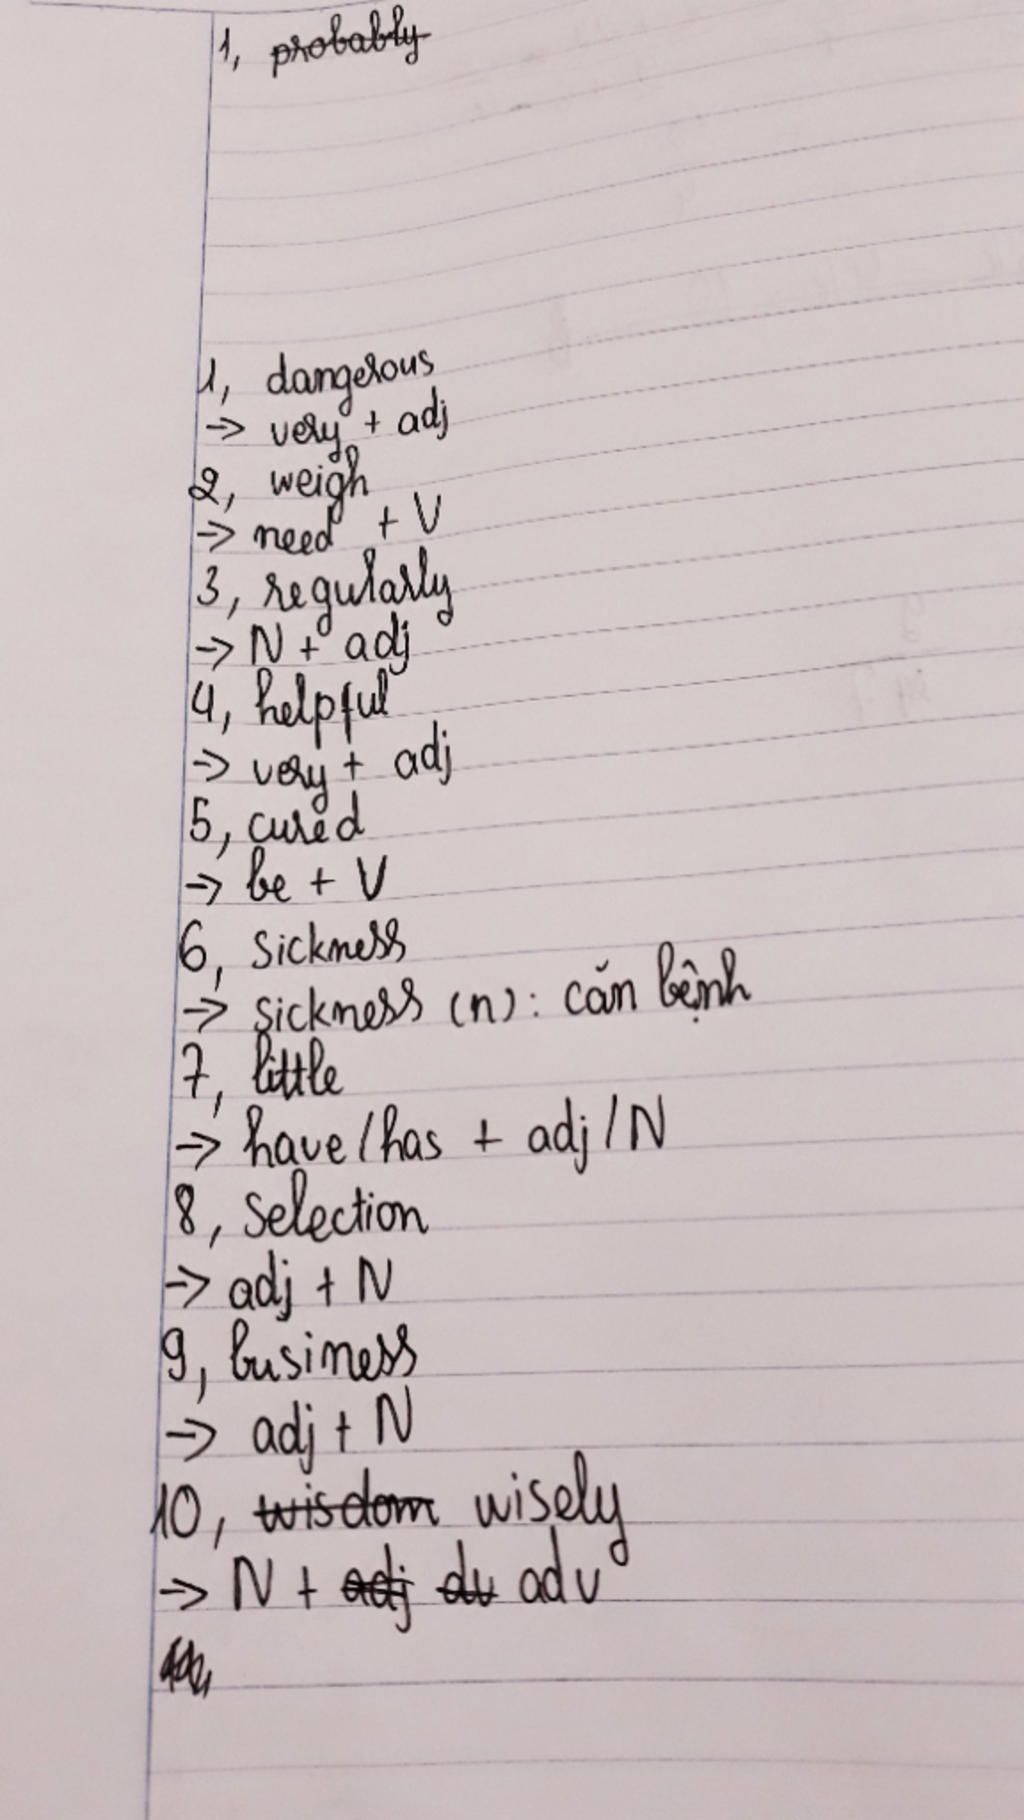 1, probably
1, dangerous
→ very + adj
2, weigh
→ need + V
3, regularly
→ N + adj
4, helpful
→ very + adj
5, cured
→ be + V
6, sickness
→ sickness (n): căn bệnh
7, little
→ have/has + adj/N
8, selection
→ adj + N
9, business
→ adj + N
10, wisdom wisely
→ N + adj dv adv